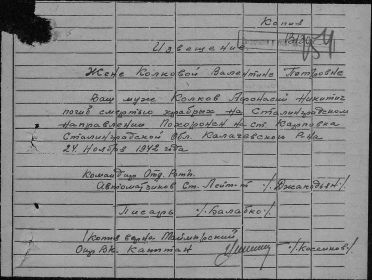 Копия
Извещение
Жене Колковой Валентине Петровне
Ваш муж Колков Афонасий Никитич
погиб смертью храбрых на Сталинградском
направлении Похоронен на ст. Карповка
Сталинградской Обл. Калачевского Р-на
24 Ноября 1942 года
Командир Отд. Роты
Автоматчиков Ст. Лейт-т
Писарь /Балабко/
Копия верна
Капитан